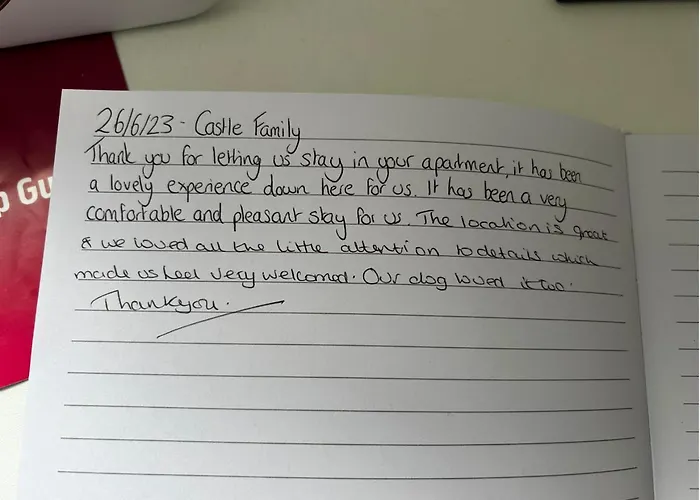 p Gu
26/6/23 - Castle Family
Thank you for letting us stay in your apartment, it has been
a lovely experience down here for us. It has been a very
comfortable and pleasant stay for us. The location is great
& we loved all the little attention to details which
made us feel very welcomed. Our dog loved it too.
Thankyou.